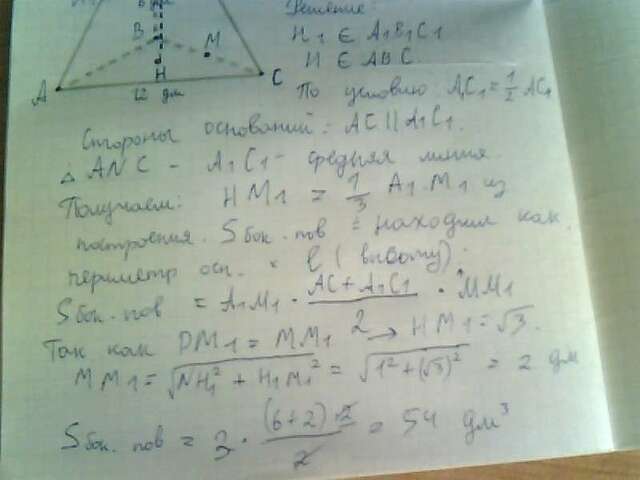 B
M
H
A
C
12 дм
Решение:
H₁ ∈ A₁B₁C₁
H ∈ ABC.
По условию A₁C₁ = 1/2 AC₁
Стороны оснований: AC || A₁C₁.
△ ANC - A₁C₁ - средняя линия.
Получаем: HM₁ = 1/3 A₁M₁ из
построения. Sбок. пов = находим как
периметр осн. · l (высоту).
Sбок. пов = A₁M₁ · (AC + A₁C₁)/2 · MM₁
Так как DM₁ = MM₁ → HM₁ = √3.
MM₁ = √(NH₁² + H₁M₁²) = √(1² + (√3)²) = 2 дм
Sбок. пов = 3 · ((6+2)·2)/2 = 54 дм³